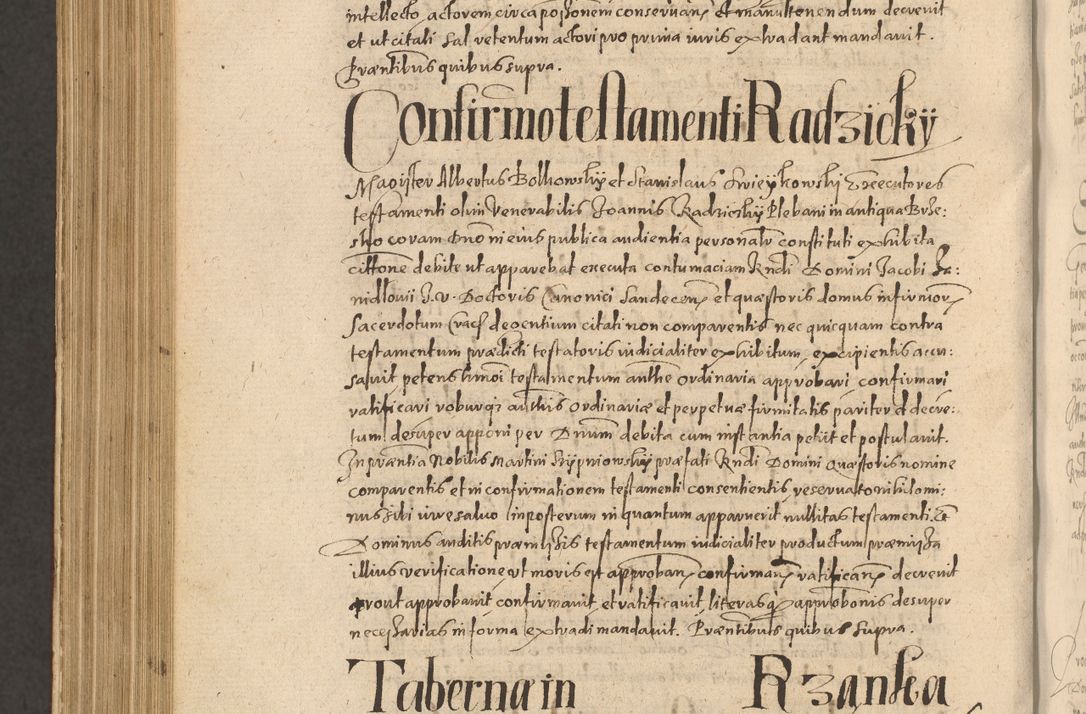 intellecto, actorem circa possessionem conservan: et manutenendum decrevit
et ut citati sal retentum actori pro prima iuris extradant mandavit.
Præntibus quibus supra.
Confirmo testamenti Radzicky
Magister Albertus Bolkowsky et Stanislaus Swieykowsky Executores
testamenti olim Venerabilis Joannis Radziczky Plebani in antiqua Brze:
sko coram Dno in eius publica audientia personalr constituti exhibita
cittone debite ut apparebat executa contumaciam Rndi Domini Jacobi
nidlowii J.V. Doctoris Canonici Sandecen: et quæstoris domus infirmor:
Sacerdotum Crac: degentium citati non comparentis nec quicquam contra
testamentum prædicti testatoris iudicialiter exhibitum excipientis accu:
savit petens hmoi testamentum autthe ordinaria approbari confirmari
ratificari roburq3 autthis ordinariæ et perpetuæ firmitatis pariter et decre:
tum desuper apponi per Dnum debita cum instantia petiit et postulavit.
In præntia Nobilis Martini Krypniowsky præfati Rndi Domini Quæstoris nomine
comparentis et in confirmationem testamenti consentientis, reservato nihilomi:
nus sibi iure salvo inposterum in quantum apparuerit nullitas testamenti. Et
Dominus auditis præmissis testamentum iudicialiter productum præmissa
illius verificatione ut moris est approban: confirman: ratifican: decrevit
prout approbavit confirmavit et ratificavit, literasq3 approbonis desuper
necessarias in forma extradi mandavit. Præntibus quibus supra.
Taberna in Rząska